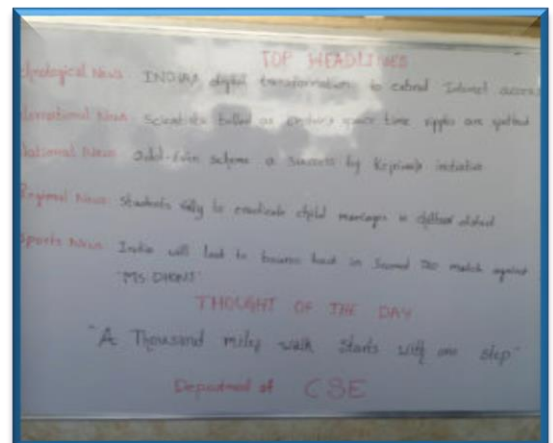 TOP HEADLINES
chnological News INDIA'S digital transformation to extend Internet access
International News Scientists as space time ripples are spotted
National News Odd-Even scheme a success by initiative
Regional News Students rally to eradicate child marriages in district
Sports News India will look to bounce back in Second T20 match against
"MS DHONI"
THOUGHT OF THE DAY
"A Thousand miles walk starts with one step"
Department of CSE